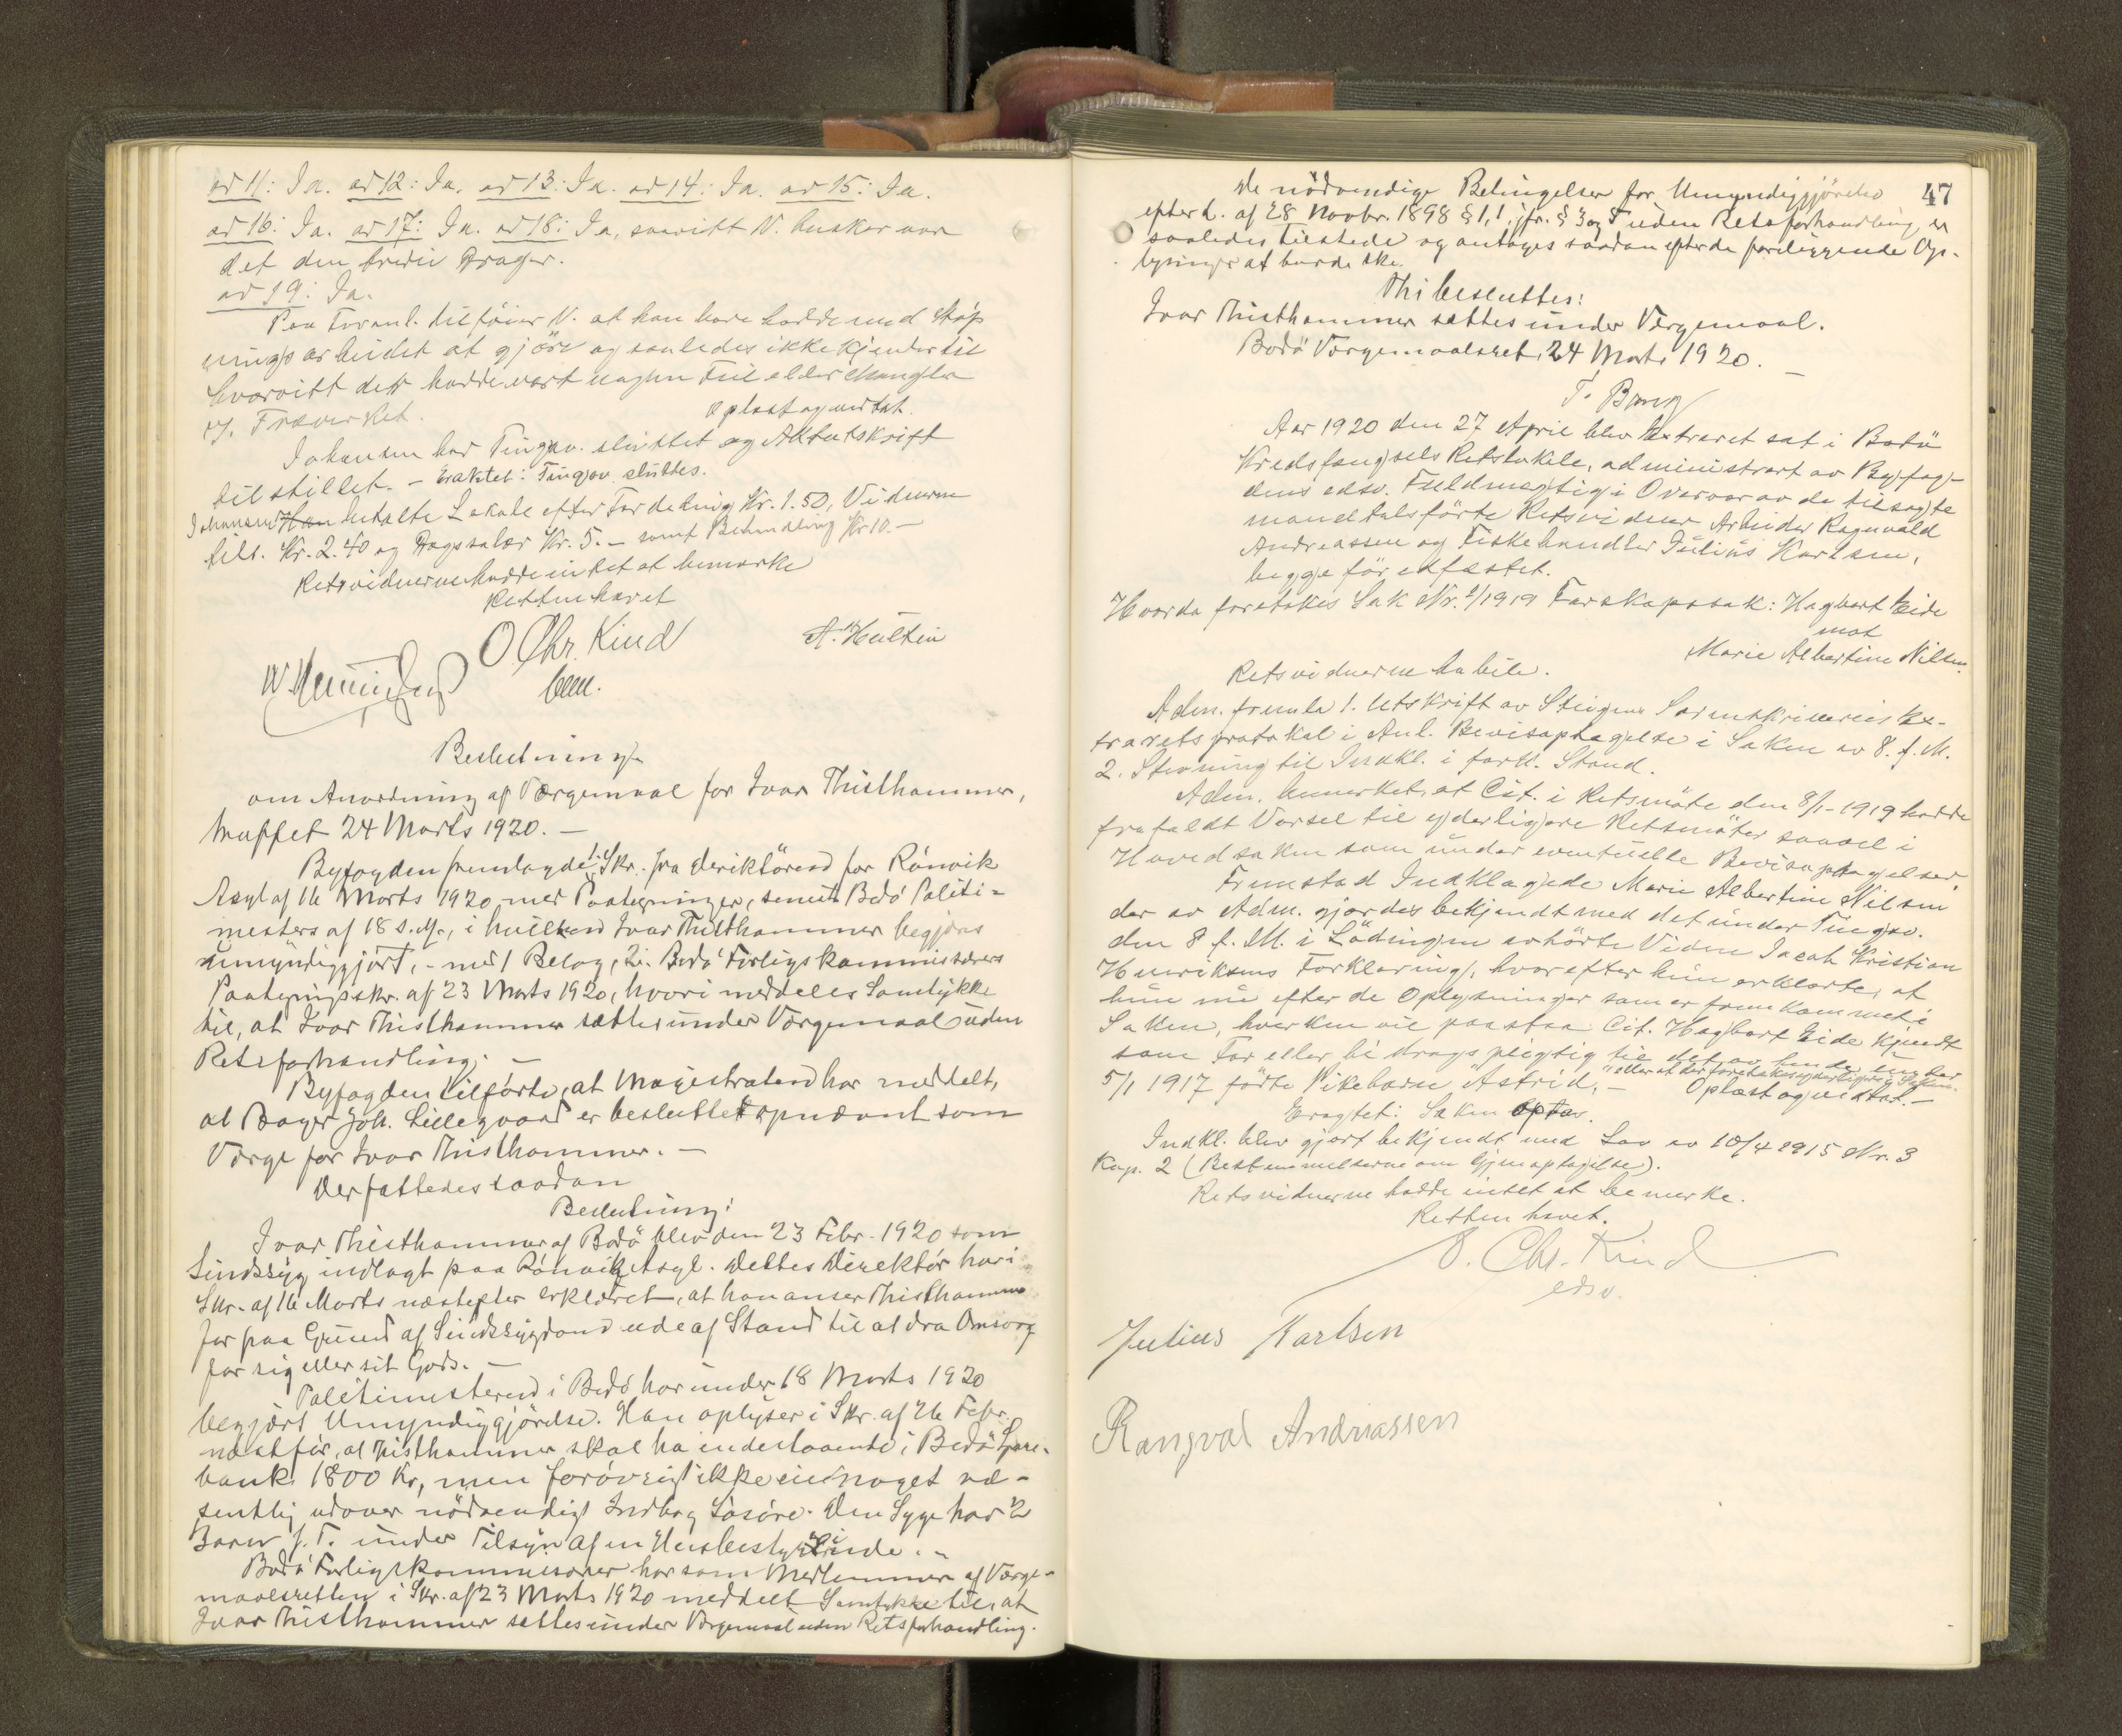 ad 11: Ja. ad 12: Ja. ad 13: Ja. ad 14: Ja. ad 15: Ja.
ad 16: Ja. ad 17: Ja. ad 18: Ja, saavitt V. husker var
det den tredie Prøger.
ad 19: Ja.
Paa Foranl. tilføier V. at han bare hadde med Støp
ningsarbeidet at gjøre og saaledes ikke kjender til
hvorvitt det hadde vært nogen Feil eller Mangler
v/ Træverket. Oplæst og vedtat.
Johansen har Tingsv. sluttet og Aktutskrift
tilstillet. - Eraktet: Tingsv. sluttes.
Johansen betalte Lokale efter Fordeling Kr. 1.50, Vidnerne
tils. Kr. 2.40 og Dagssalær Kr. 5.- samt Behandling Kr 10.-
Retsvidnerne hadde intet at bemærke
Retten hævet
O. Chr. Kind
A. Hultin
W.
Beslutning
om Anordning af Værgemaal for Ivar Thisthammer,
truffet 24 Marts 1920. -
Byfogden fremlagde: 1. Skr. fra Direktøren for Rønvik
Asyl af 16 Marts 1920 med Paategninger, senest Bodø Politi-
mesters af 18 s. M., i hvilken Ivar Thisthammer begjæres
umyndiggjort, - med 1 Belag, 2. Bodø Forligskommissærers
Paategningsskr. af 23 Marts 1920, hvori meddeles Samtykke
til, at Ivar Thisthammer sættes under Værgemaal uden
Retsforhandling. -
Byfogden tilførte, at Magistraten har meddelt,
at Bager Joh. Lillegaard er besluttet opnævnt som
Værge for Ivar Thisthammer. -
Der fattedes saadan
Beslutning:
Ivar Thisthammer af Bodø blev den 23 Febr. 1920 som
Sindssyg indlagt paa Rønvik Asyl. Dettes Direktør har i
Skr. af 16 Marts næstefter erklæret, at han anser Thisthammer
for paa Grund af Sindssygdom ude af Stand til at dra Omsorg
for sig eller sit Gods. -
Politimesteren i Bodø har under 18 Marts 1920
begjært Umyndiggjørelse. Han oplyser i Skr. af 26 Febr.
næstfør, at Thisthammer skal ha indestaaende i Bodø Spare-
bank 1800 Kr, men forøvrigt ikke eier noget væ-
sentlig udover nødvendigt Indbo og Løsøre. Den Syge har 2
Barn f. T. under Tilsyn af en Husbestyrerinde. -
Bodø Forligskommissærer har som Medlemmer af Værge-
maalsretten i Skr. af 23 Marts 1920 meddelt Samtykke til, at
Ivar Thisthammer sættes under Værgemaal uden Retsforhandling.
47
De nødvendige Betingelser for Umyndiggjørelse
efter L. af 28 Novbr. 1898 § 1, 1, jfr. § 3 og uden Retsforhandling er
saaledes tilstede og antages saadan efter de foreliggende Op-
lysninger at burde ske.
Thi besluttes:
Ivar Thisthammer sættes under Værgemaal.
Bodø Værgemaalsret, 24 Marts 1920. -
T. Bang
Aar 1920 den 27 April blev Extraret sat i Bodø
Kredsfængsels Retslokale, administrert av Byfog-
dens edsv. Fuldmægtig i Overvær av de tilsagte
mandtalsførte Retsvidner Arbeider Ragnvald
Andreassen og Fiskehandler Julius Karlsen,
begge før edfæstet.
Hvorda foretokes Sak Nr. 1/1919 Farskapssak: Hagbart Eide
mot
Marie Albertine Nilsen.
Retsvidnerne habile.
Adm. fremla 1. Utskrift av Steigens Sorenskriveries Ex-
traretsprotokol i Anl. Bevisoptagelse i Saken av 8. f. M.
2. Stevning til Indkl. i fork. Stand.
Adm. bemerket, at Cit. i Retsmøte den 8/1-1919 hadde
frafaldt Varsel til yderligere Retsmøter saavel i
Hovedsaken som under eventuelle Bevisoptagelser.
Fremstod Indklagede Marie Albertine Nilsen
der av Adm. gjordes bekjendt med det under Tingsv.
den 8 f. M. i Lødingen avhørte Vidne Jacob Kristian
Henriksens Forklaring, hvorefter hun erklærte, at
hun nu efter de Oplysninger som er fremkommet i
Saken, hverken vil paastaa Cit. Hagbart Eide kjendt
som Far eller bidragspligtig til det av hende under
5/1 1917 førte Pikebarn "Astrid," - eller at der foretakes yderligere i Saken.
Oplæst og vedtat. -
Eragtet: Saken optas.
Indkl. blev gjort bekjendt med Lov av 10/4 1915 Nr. 3
Kap. 2 (Bestemmelserne om Gjenoptagelse).
Retsvidnerne hadde intet at bemerke.
Retten hævet.
O. Chr. Kind
edsv.
Julius Karlsen
Rangval Andriassen